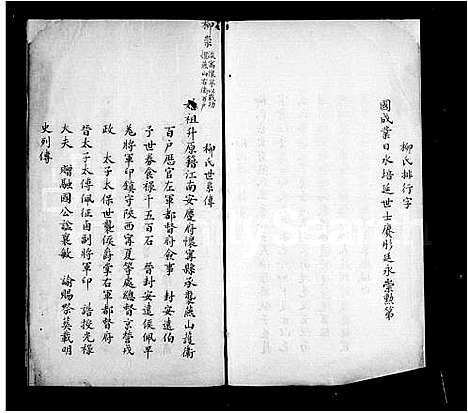 柳氏排行字
國成業日永培延世士慶彤廷永崇勲第
柳景
燕山右衛百戶
柳氏世系傳
始祖升原籍江南安慶府懷寧縣承襲燕山護衛
百戶歷官左軍都督府僉事 封安遠伯
子世券食祿千五百石 晉封安遠侯佩平
羌將軍印鎮守陝西寧夏等處總督京營戎
政 太子太保世襲侯爵掌右軍都督府
晉太子太傅佩征南副將軍印 誥授光祿
大夫 贈融國公諡襄敏 諭賜祭葬載明
史列傳